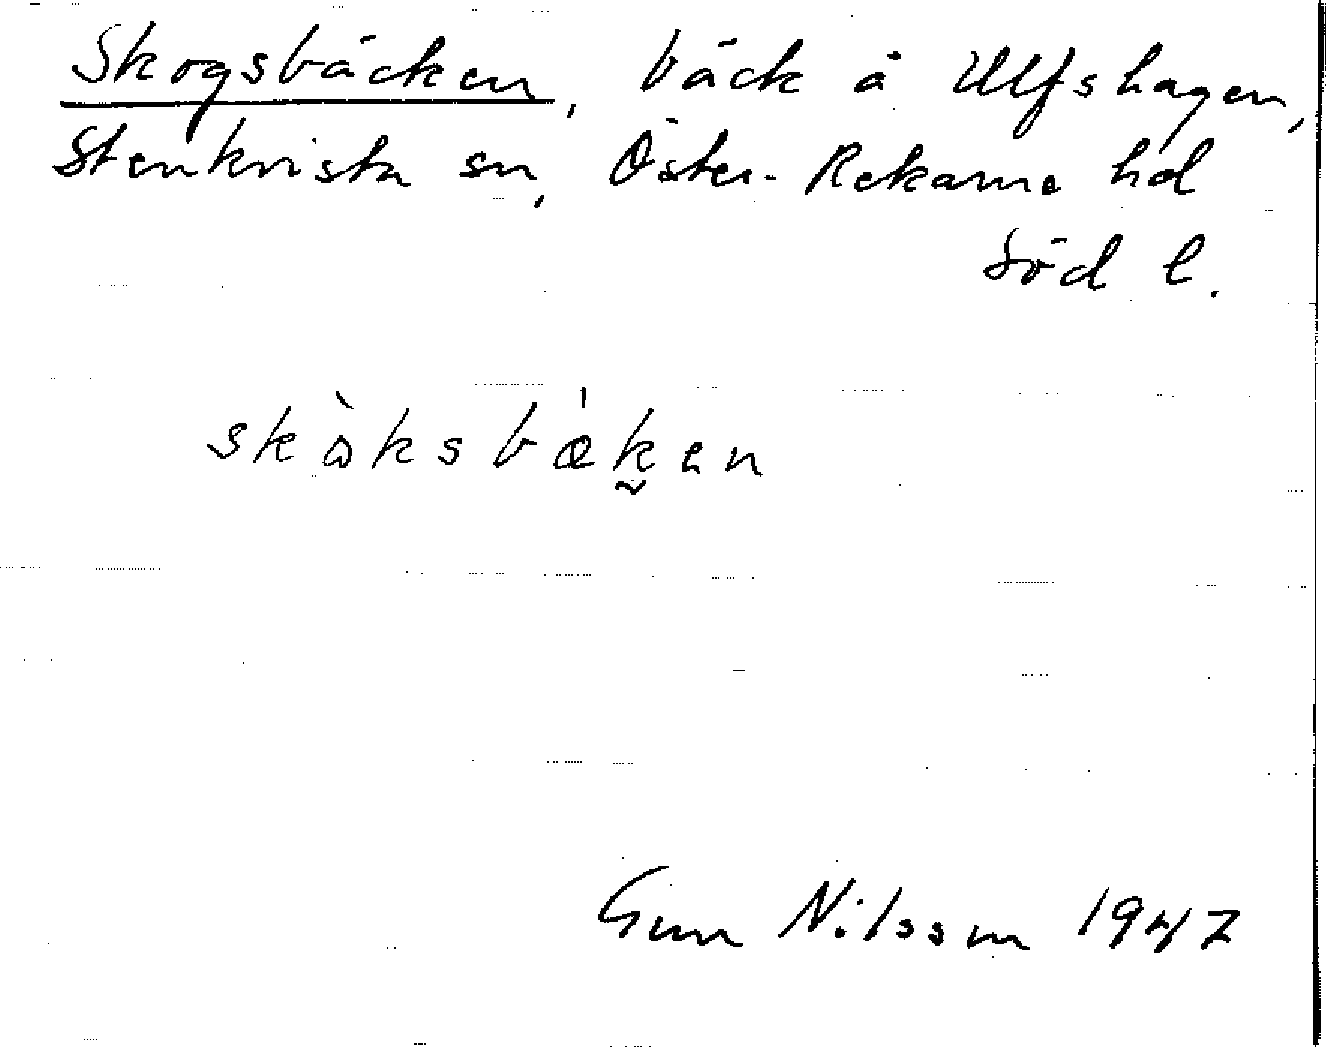 Skogsbäcken, bäck å Ulfshagen,
Stenkvista sn, Öster-Rekarne hd
Söd l.
skòksbæ̍k̰en
Gun Nilsson 1947